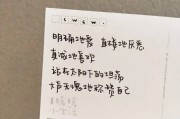 明确地爱 直接地厌恶
真诚地喜欢
站在太阳下的坦荡
大声无愧地称赞自己